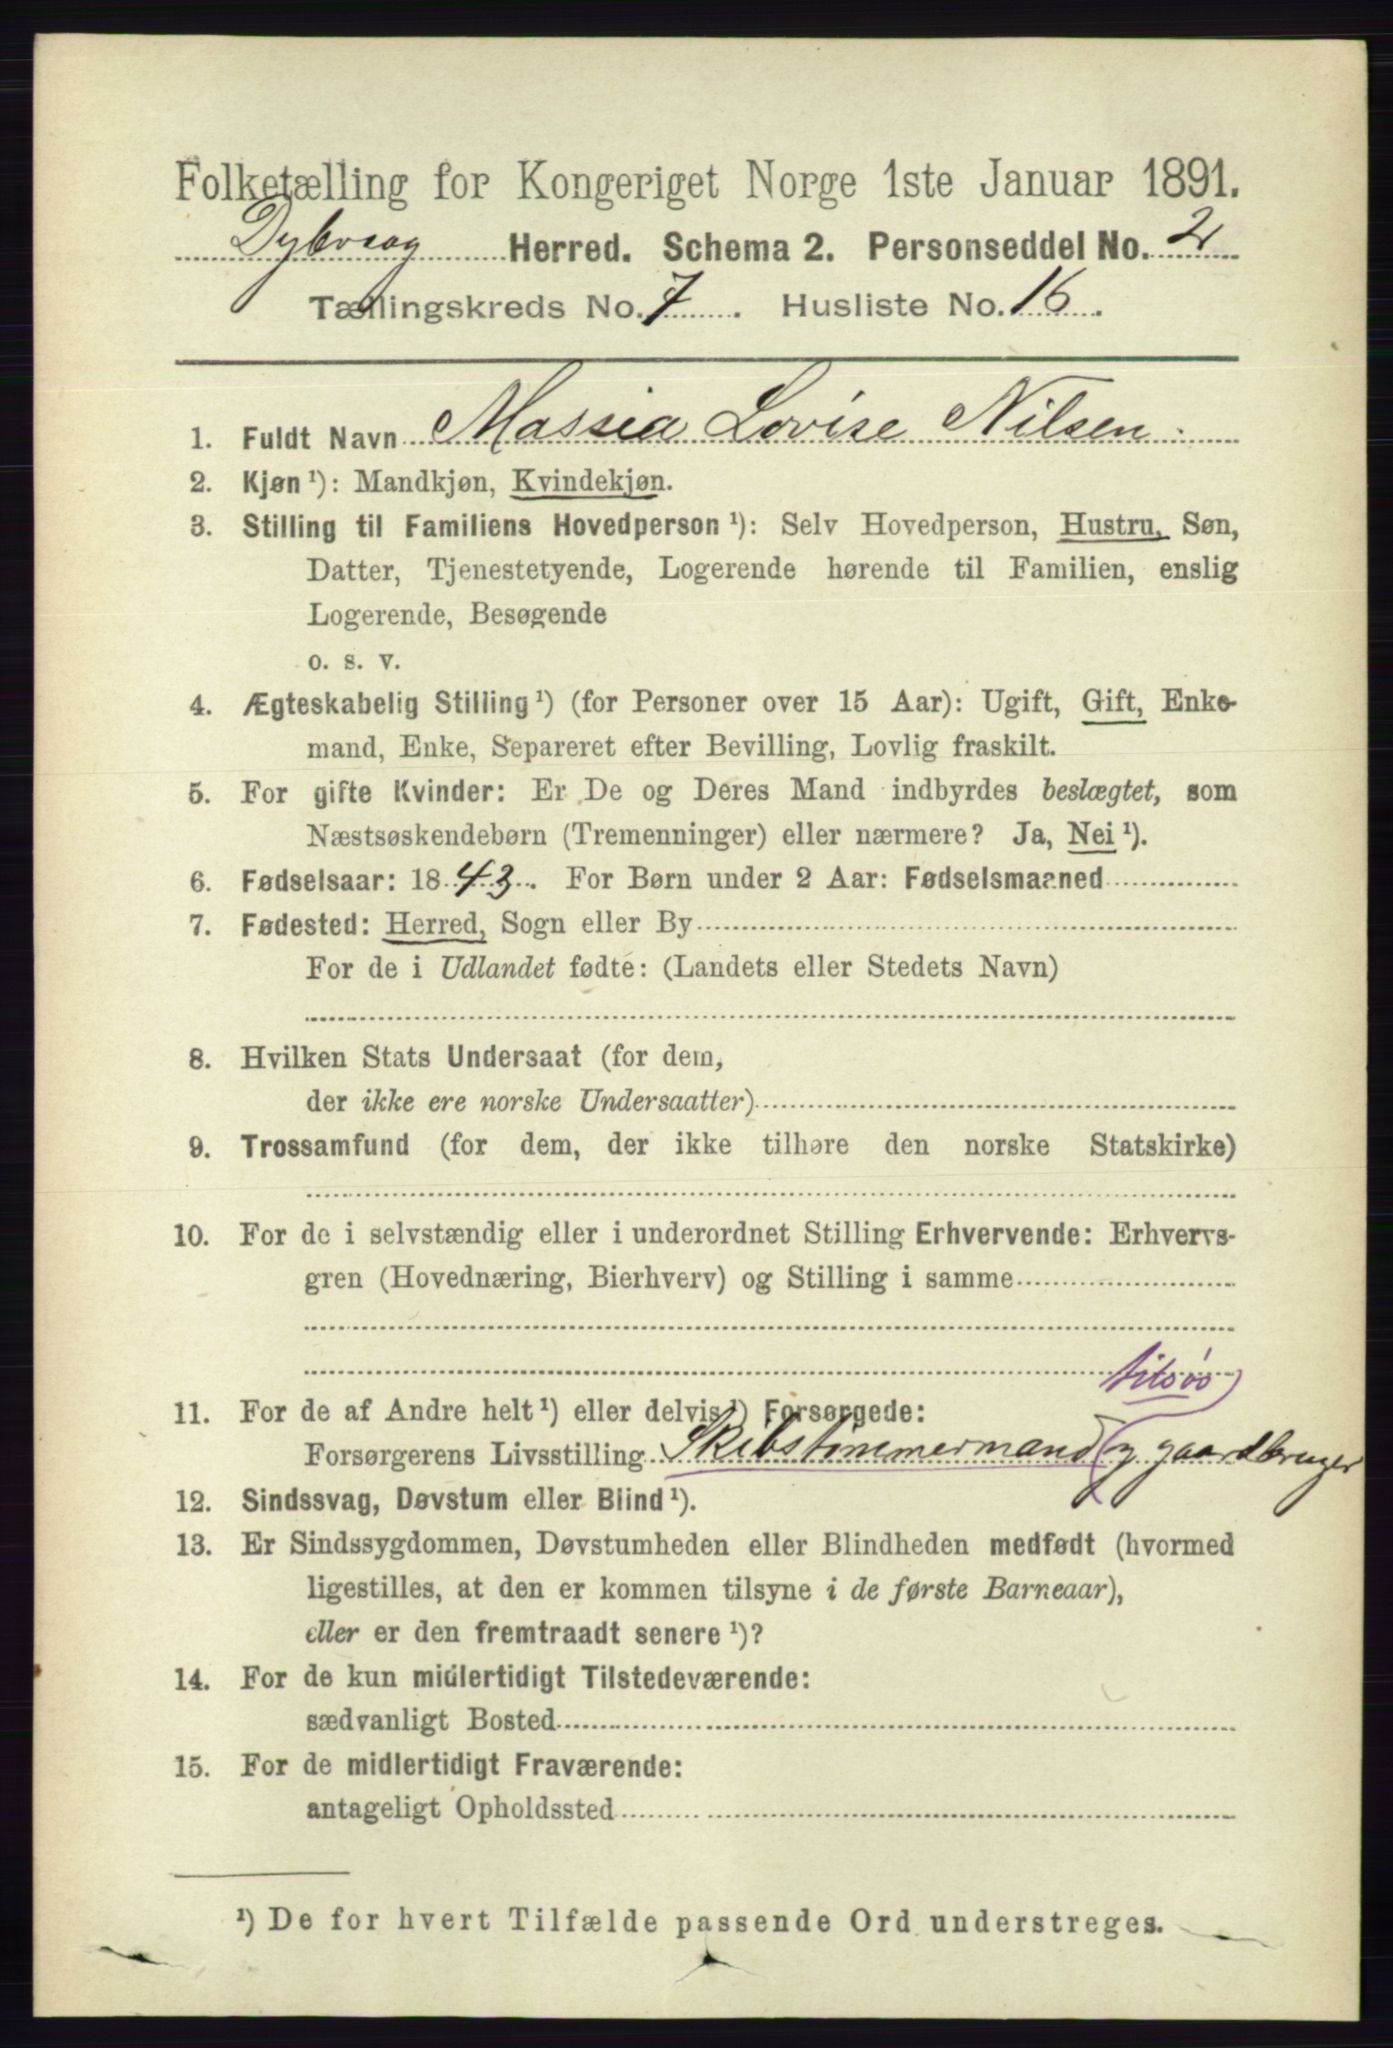 Folketælling for Kongeriget Norge 1ste Januar 1891.
Dybvaag Herred. Schema 2. Personseddel No. 2
Tællingskreds No. 7. Husliste No. 16.
1. Fuldt Navn Massia Lovise Nilsen.
2. Kjøn ¹): Mandkjøn, Kvindekjøn.
3. Stilling til Familiens Hovedperson ¹): Selv Hovedperson, Hustru, Søn,
Datter, Tjenestetyende, Logerende hørende til Familien, enslig
Logerende, Besøgende
o. s. v.
4. Ægteskabelig Stilling ¹) (for Personer over 15 Aar): Ugift, Gift, Enke-
mand, Enke, Separeret efter Bevilling, Lovlig fraskilt.
5. For gifte Kvinder: Er De og Deres Mand indbyrdes beslægtet, som
Næstsøskendebørn (Tremenninger) eller nærmere? Ja, Nei ¹).
6. Fødselsaar: 1843. For Børn under 2 Aar: Fødselsmaaned
7. Fødested: Herred, Sogn eller By
For de i Udlandet fødte: (Landets eller Stedets Navn)
8. Hvilken Stats Undersaat (for dem,
der ikke ere norske Undersaatter)
9. Trossamfund (for dem, der ikke tilhøre den norske Statskirke)
10. For de i selvstændig eller i underordnet Stilling Erhvervende: Erhvervs-
gren (Hovednæring, Bierhverv) og Stilling i samme
11. For de af Andre helt ¹) eller delvis ¹) Forsørgede:
Forsørgerens Livsstilling Skibstømmermand og gaardbruger
12. Sindssvag, Døvstum eller Blind ¹).
13. Er Sindssygdommen, Døvstumheden eller Blindheden medfødt (hvormed
ligestilles, at den er kommen tilsyne i de første Barneaar),
eller er den fremtraadt senere ¹)?
14. For de kun midlertidigt Tilstedeværende:
sædvanligt Bosted
15. For de midlertidigt Fraværende:
antageligt Opholdssted
¹) De for hvert Tilfælde passende Ord understreges.